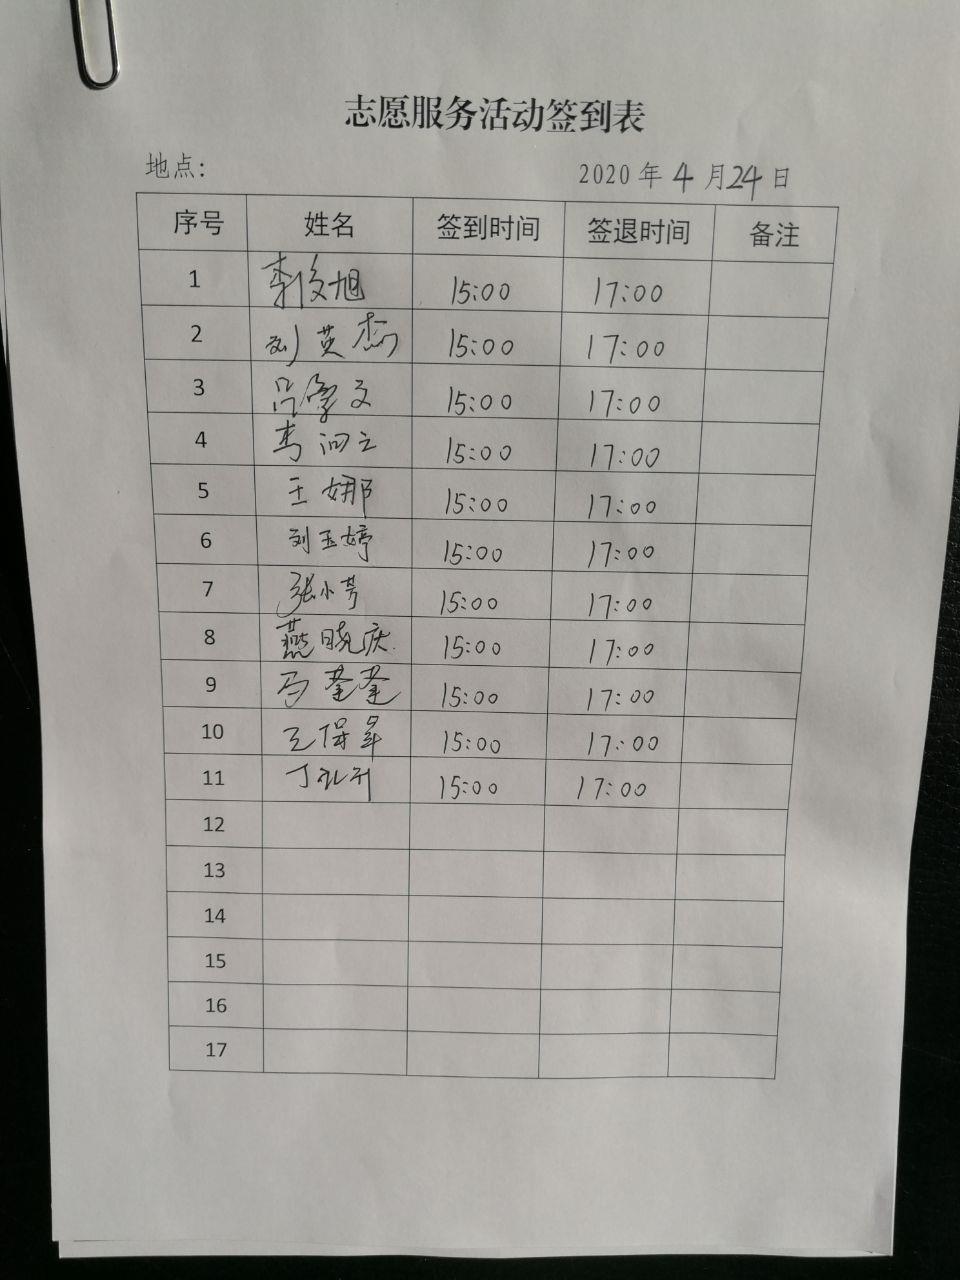 志愿服务活动签到表
地点： 2020 年 4 月 24 日
序号 姓名 签到时间 签退时间 备注
1 李俊旭 15:00 17:00
2 刘英杰 15:00 17:00
3 吕学文 15:00 17:00
4 15:00 17:00
5 王娜 15:00 17:00
6 刘玉婷 15:00 17:00
7 张小芳 15:00 17:00
8 燕晓庆 15:00 17:00
9 马奎奎 15:00 17:00
10 15:00 17:00
11 15:00 17:00
12
13
14
15
16
17